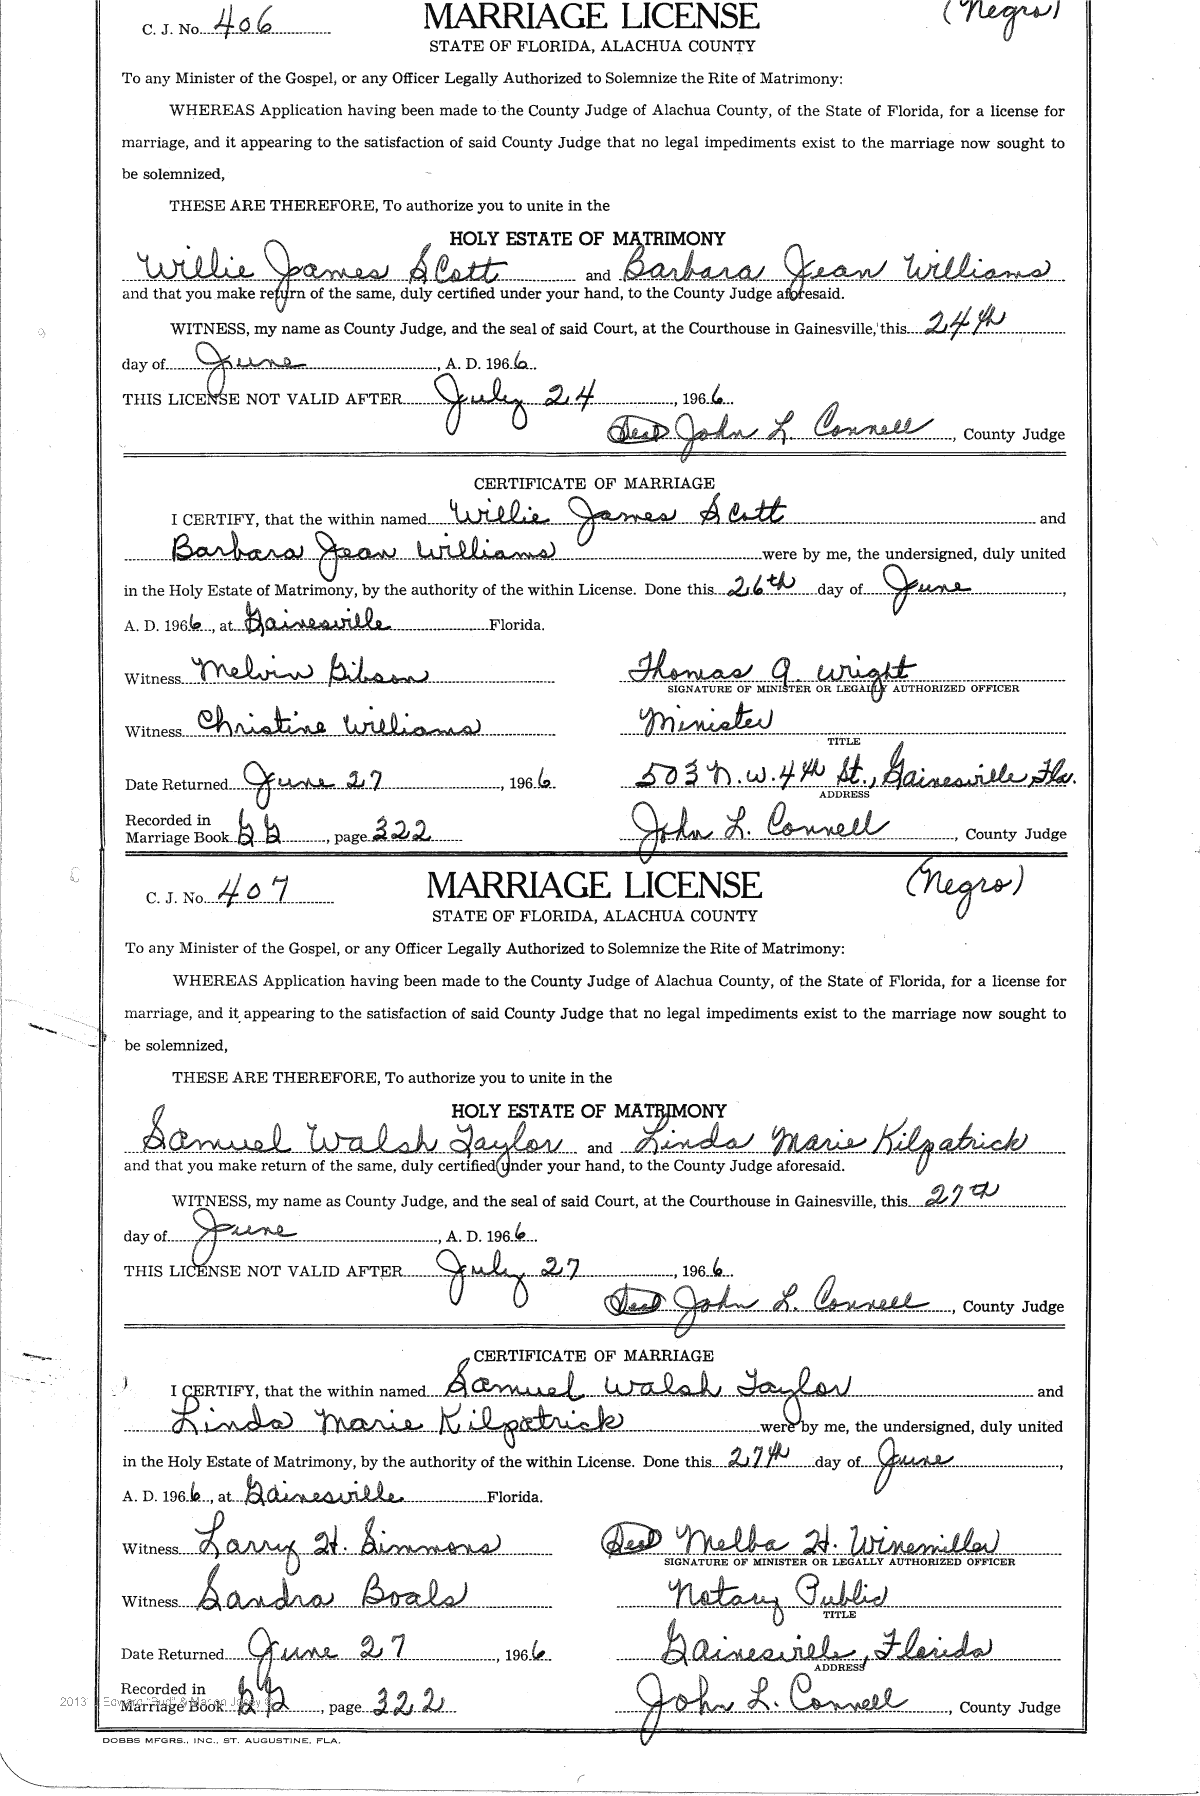 C. J. No. 406 MARRIAGE LICENSE (Negro)
STATE OF FLORIDA, ALACHUA COUNTY
To any Minister of the Gospel, or any Officer Legally Authorized to Solemnize the Rite of Matrimony:
WHEREAS Application having been made to the County Judge of Alachua County, of the State of Florida, for a license for
marriage, and it appearing to the satisfaction of said County Judge that no legal impediments exist to the marriage now sought to
be solemnized,
THESE ARE THEREFORE, To authorize you to unite in the
HOLY ESTATE OF MATRIMONY
Willie James Scott and Barbara Jean Williams
and that you make return of the same, duly certified under your hand, to the County Judge aforesaid.
WITNESS, my name as County Judge, and the seal of said Court, at the Courthouse in Gainesville, this 24th
day of June, A. D. 1966.
THIS LICENSE NOT VALID AFTER July 24, 1966.
(Seal) John L. Connell, County Judge
CERTIFICATE OF MARRIAGE
I CERTIFY, that the within named Willie James Scott and
Barbara Jean Williams were by me, the undersigned, duly united
in the Holy Estate of Matrimony, by the authority of the within License. Done this 26th day of June,
A. D. 1966, at Gainesville Florida.
Witness Melvin Gibson Thomas A. Wright
SIGNATURE OF MINISTER OR LEGALLY AUTHORIZED OFFICER
Witness Christine Williams Minister
TITLE
Date Returned June 27, 1966. 503 N.W. 4th St., Gainesville, Fla.
ADDRESS
Recorded in
Marriage Book, page 322 John L. Connell, County Judge
C. J. No. 407 MARRIAGE LICENSE (Negro)
STATE OF FLORIDA, ALACHUA COUNTY
To any Minister of the Gospel, or any Officer Legally Authorized to Solemnize the Rite of Matrimony:
WHEREAS Application having been made to the County Judge of Alachua County, of the State of Florida, for a license for
marriage, and it appearing to the satisfaction of said County Judge that no legal impediments exist to the marriage now sought to
be solemnized,
THESE ARE THEREFORE, To authorize you to unite in the
HOLY ESTATE OF MATRIMONY
Samuel Walsh Taylor and Linda Marie Kilpatrick
and that you make return of the same, duly certified under your hand, to the County Judge aforesaid.
WITNESS, my name as County Judge, and the seal of said Court, at the Courthouse in Gainesville, this 27th
day of June, A. D. 1966.
THIS LICENSE NOT VALID AFTER July 27, 1966.
(Seal) John L. Connell, County Judge
CERTIFICATE OF MARRIAGE
I CERTIFY, that the within named Samuel Walsh Taylor and
Linda Marie Kilpatrick were by me, the undersigned, duly united
in the Holy Estate of Matrimony, by the authority of the within License. Done this 27th day of June,
A. D. 1966, at Gainesville Florida.
Witness Larry H. Simmons (Seal) Melba H. Winemiller
SIGNATURE OF MINISTER OR LEGALLY AUTHORIZED OFFICER
Witness Sandra Boals Notary Public
TITLE
Date Returned June 27, 1966. Gainesville, Florida
ADDRESS
Recorded in
Marriage Book, page 322 John L. Connell, County Judge
2013
DOBBS MFGRS., INC., ST. AUGUSTINE, FLA.